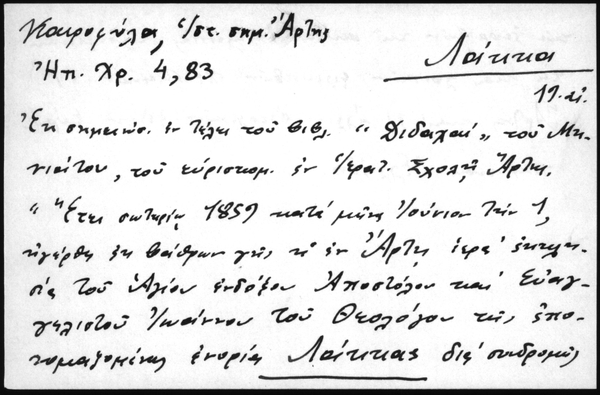 Γκαροφύλα, Ἱστ. σημ. Ἄρτης
Ἠπ. Χρ. 4, 83
Λαίκκα
19. αἰ.
Ἐκ σημειώσ. ἐν τέλει τοῦ βιβλ. “ Διδαχαί „ τοῦ Μη-
νιάτου, τοῦ εὑρισκομ. ἐν Ἱερατ. Σχολῇ Ἄρτης.
“ Ἔτει σωτηρίῳ 1859 κατὰ μῆνα Ἰούνιον τὴν 1,
ἠγέρθη ἐκ βάθρων γῆς ἡ ἐν Ἄρτῃ ἱερὰ ἐκκλη-
σία τοῦ Ἁγίου ἐνδόξου Ἀποστόλου καὶ Εὐαγ-
γελιστοῦ Ἰωάννου τοῦ Θεολόγου τῆς ἐπο-
νομαζομένης ἐνορίας Λαίκκας διὰ συνδρομῆς